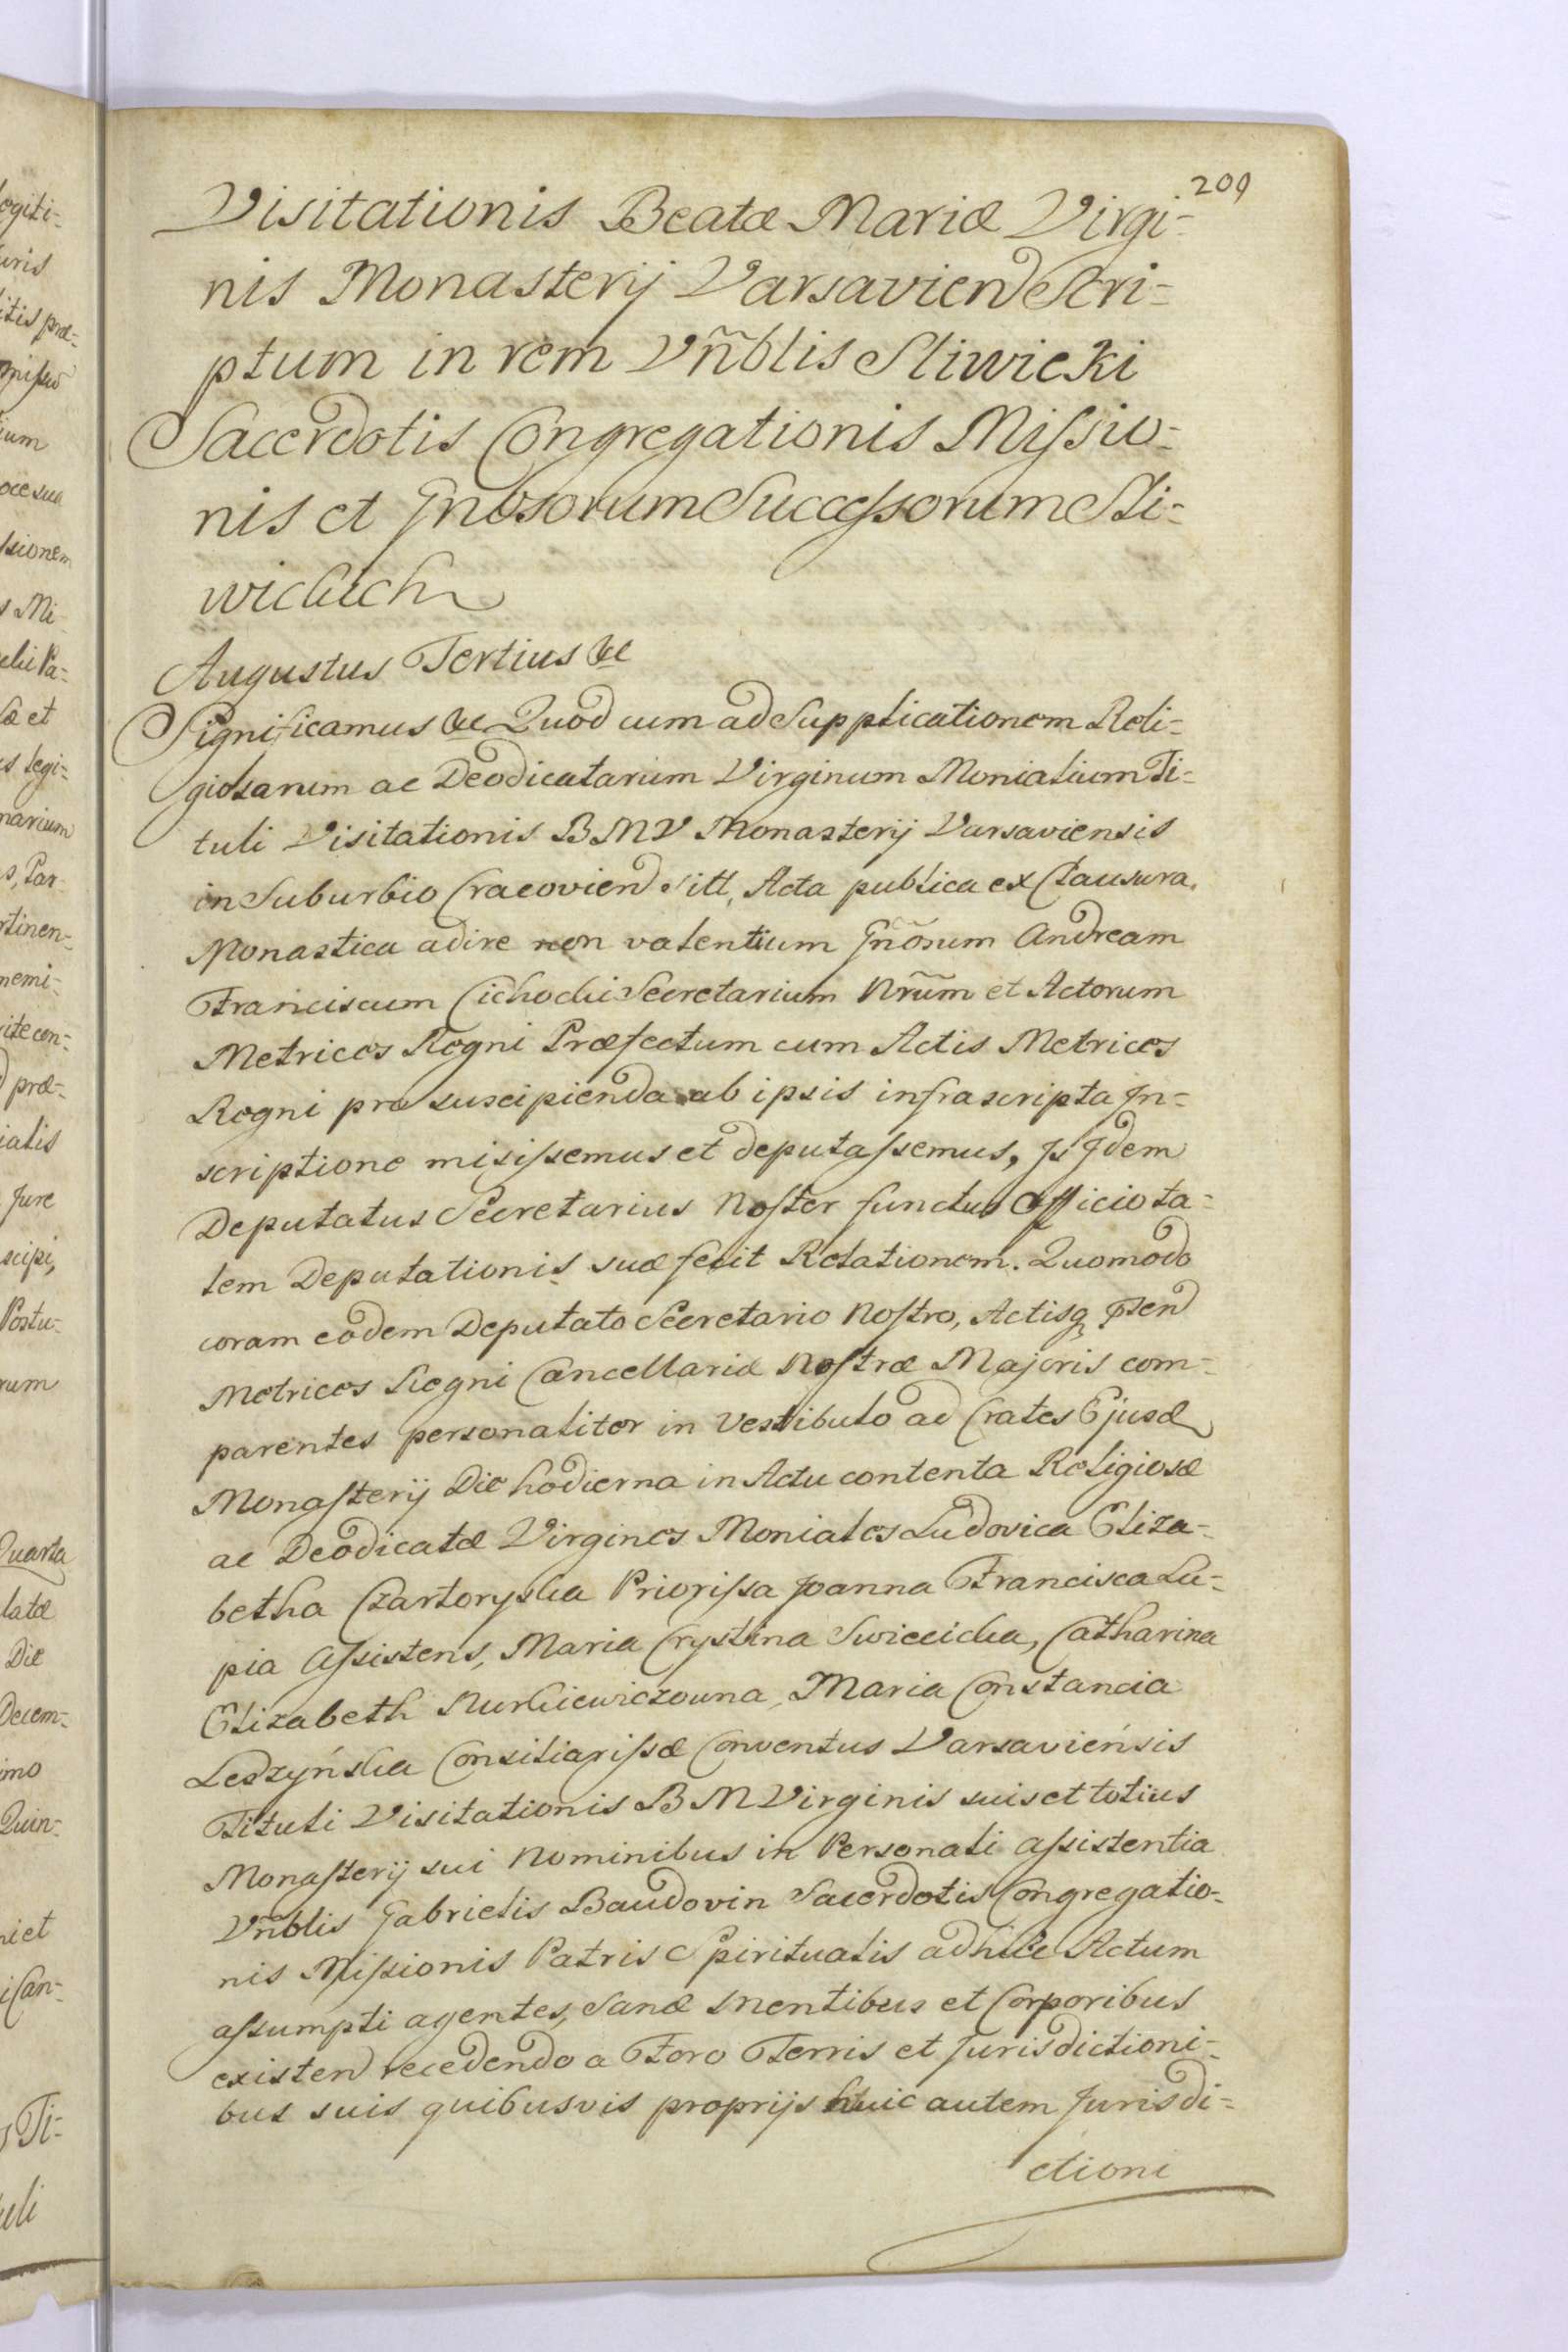 209
Visitationis Beatæ Mariæ Virgi=
nis Monasterij Varsavien Scri=
ptum in rem Vñblis Sliwicki
Sacerdotis Congregationis Missio=
nis et Gnosorum Successorum Sli=
wickich
Augustus Tertius &c
Significamus &c Quod cum ad Supplicationem Reli=
giosarum ac Deodicatarum Virginum Monialium Ti=
tuli Visitationis B M V Monasterij Varsaviensis
in Suburbio Cracovien sitt, Acta publica ex Clausura
Monastica adire non valentium Gñosum Andream
Franciscum Cichocki Secretarium Nrũm et Actorum
Metrices Regni Præfectum cum Actis Metrices
Regni pro suscipienda ab ipsis infrascripta In=
scriptione misissemus et deputassemus, Is Idem
Deputatus Secretarius Noster functus Officio ta=
lem Deputationis suæ fecit Relationem. Quomodo
coram eodem Deputato Secretario Nostro, Actisq pñsen
Metrices Regni Cancellariæ Nostræ Majoris com=
parentes personaliter in Vestibulo ad Crates Ejusd
Monasterij Die hodierna in Actu contenta Religiosæ
ac Deodicatæ Virgines Moniales Ludovica Eliza=
betha Czartoryska Priorissa Joanna Francisca Lu=
pia Assistens, Maria Crystina Swiecicka, Catharina
Elizabeth Kurkiewiczowna, Maria Constancia
Ledzyńska Consiliarissæ Conventus Varsavieńsis
Tituli Visitationis B M Virginis suis et totius
Monasterij sui Nominibus in Personali assistentia
Vñblis Gabrielis Baudovin Sacerdotis Congregatio=
nis Missionis Patris Spiritualis ad hūc Actum
assumpti agentes, Sanæ Mentibus et Corporibus
existen recedendo a Foro Terris et Jurisdictioni=
bus suis quibusvis proprijs huic autem Jurisdi=
ctioni